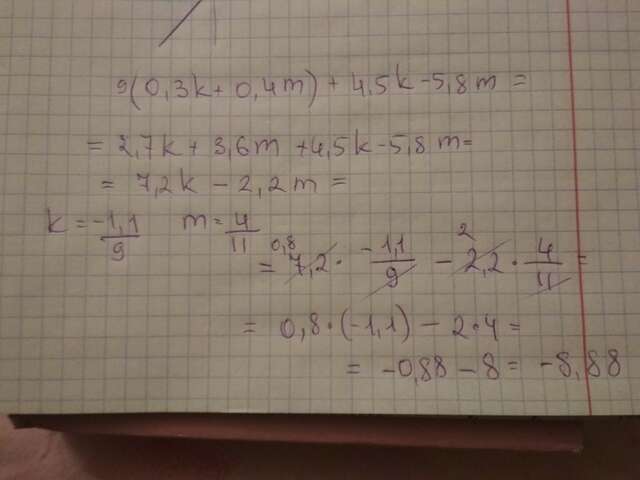 9(0,3k+0,4m)+4,5k-5,8m=
=2,7k+3,6m+4,5k-5,8m=
=7,2k-2,2m=
k=-1,1/9 m=4/11
0,8 2
=7,2·-1,1/9-2,2·4/11=
=0,8·(-1,1)-2·4=
=-0,88-8=-8,88